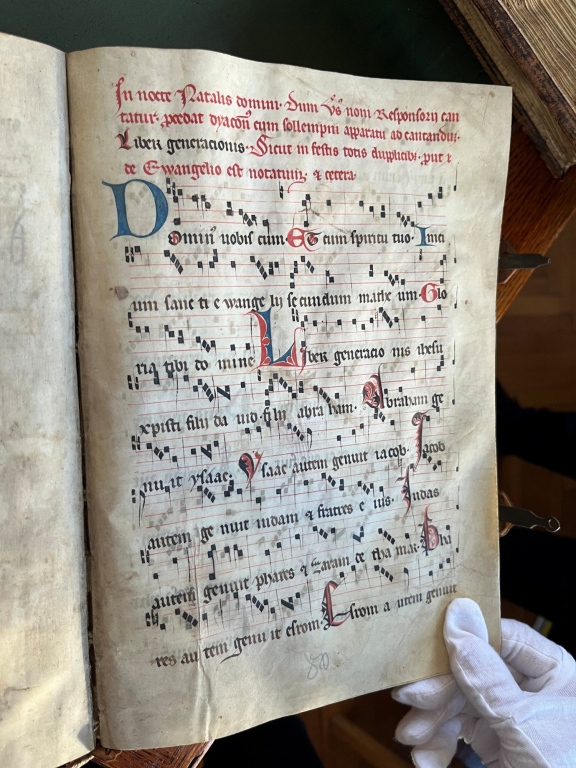 In nocte Natalis domini. Dum ýs noni Responsorij can
tatur. procedat dyacon⁹ cum sollempni apparatu ad cantandũ.
Liber generacionis. Sicut in festis totis duplicibꝫ. put ꝛ
de Ewangelio est notatum. ꝛ cetera.
Dominꝰ uobis cum. Et cum spiritu tuo. Inici
um sanc ti e wange lij se cundum mathe um. Glo
ria tibi do mine. Liber generacio nis ihesu
xpisti filij da uid. fi lij abra ham. Abraham ge
nu it ysaac. Ysaac autem genuit iacob. Jacob
autem ge nuit iudam ꝛ fratres e ius. Iudas
autem genuit phares ꝛ zaram de tha mar. Pha
res au tem genu it esrom. Esrom a utem genuit